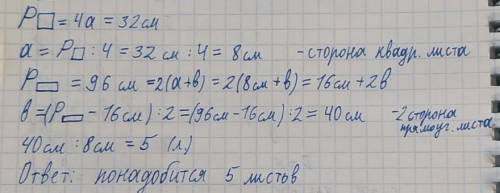 P□ = 4a = 32см
a = P□ : 4 = 32 см : 4 = 8см - сторона квадр. листа
P▭ = 96 см = 2(a+в) = 2(8см + в) = 16см + 2в
в = (P▭ - 16см) : 2 = (96см - 16см) : 2 = 40см - 2 сторона прямоуг. листа
40см : 8см = 5 (л)
Ответ: понадобится 5 листов